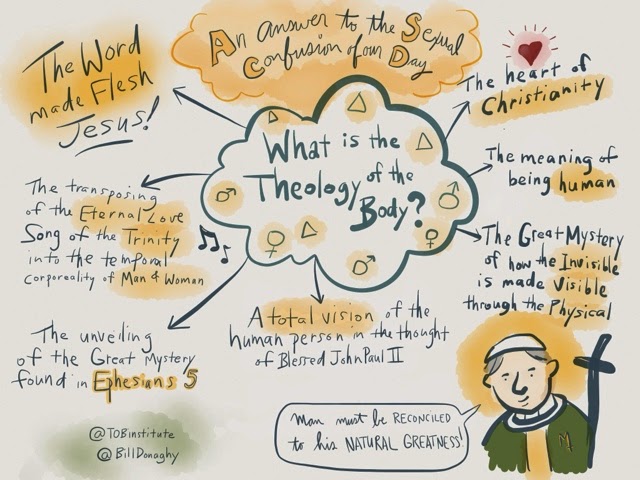 An answer to the Sexual
Confusion of our Day
The Word
made Flesh
Jesus!
What is the
Theology of the
Body?
The heart of
Christianity
The meaning of
being human
The transposing
of the Eternal Love
Song of the Trinity
into the temporal
corporeality of Man & Woman
The Great Mystery
of how the Invisible
is made Visible
through the Physical
A total vision of the
human person in the thought
of Blessed John Paul II
The unveiling
of the Great Mystery
found in Ephesians 5
Man must be RECONCILED
to his NATURAL GREATNESS!
M
@TOBinstitute
@BillDonaghy